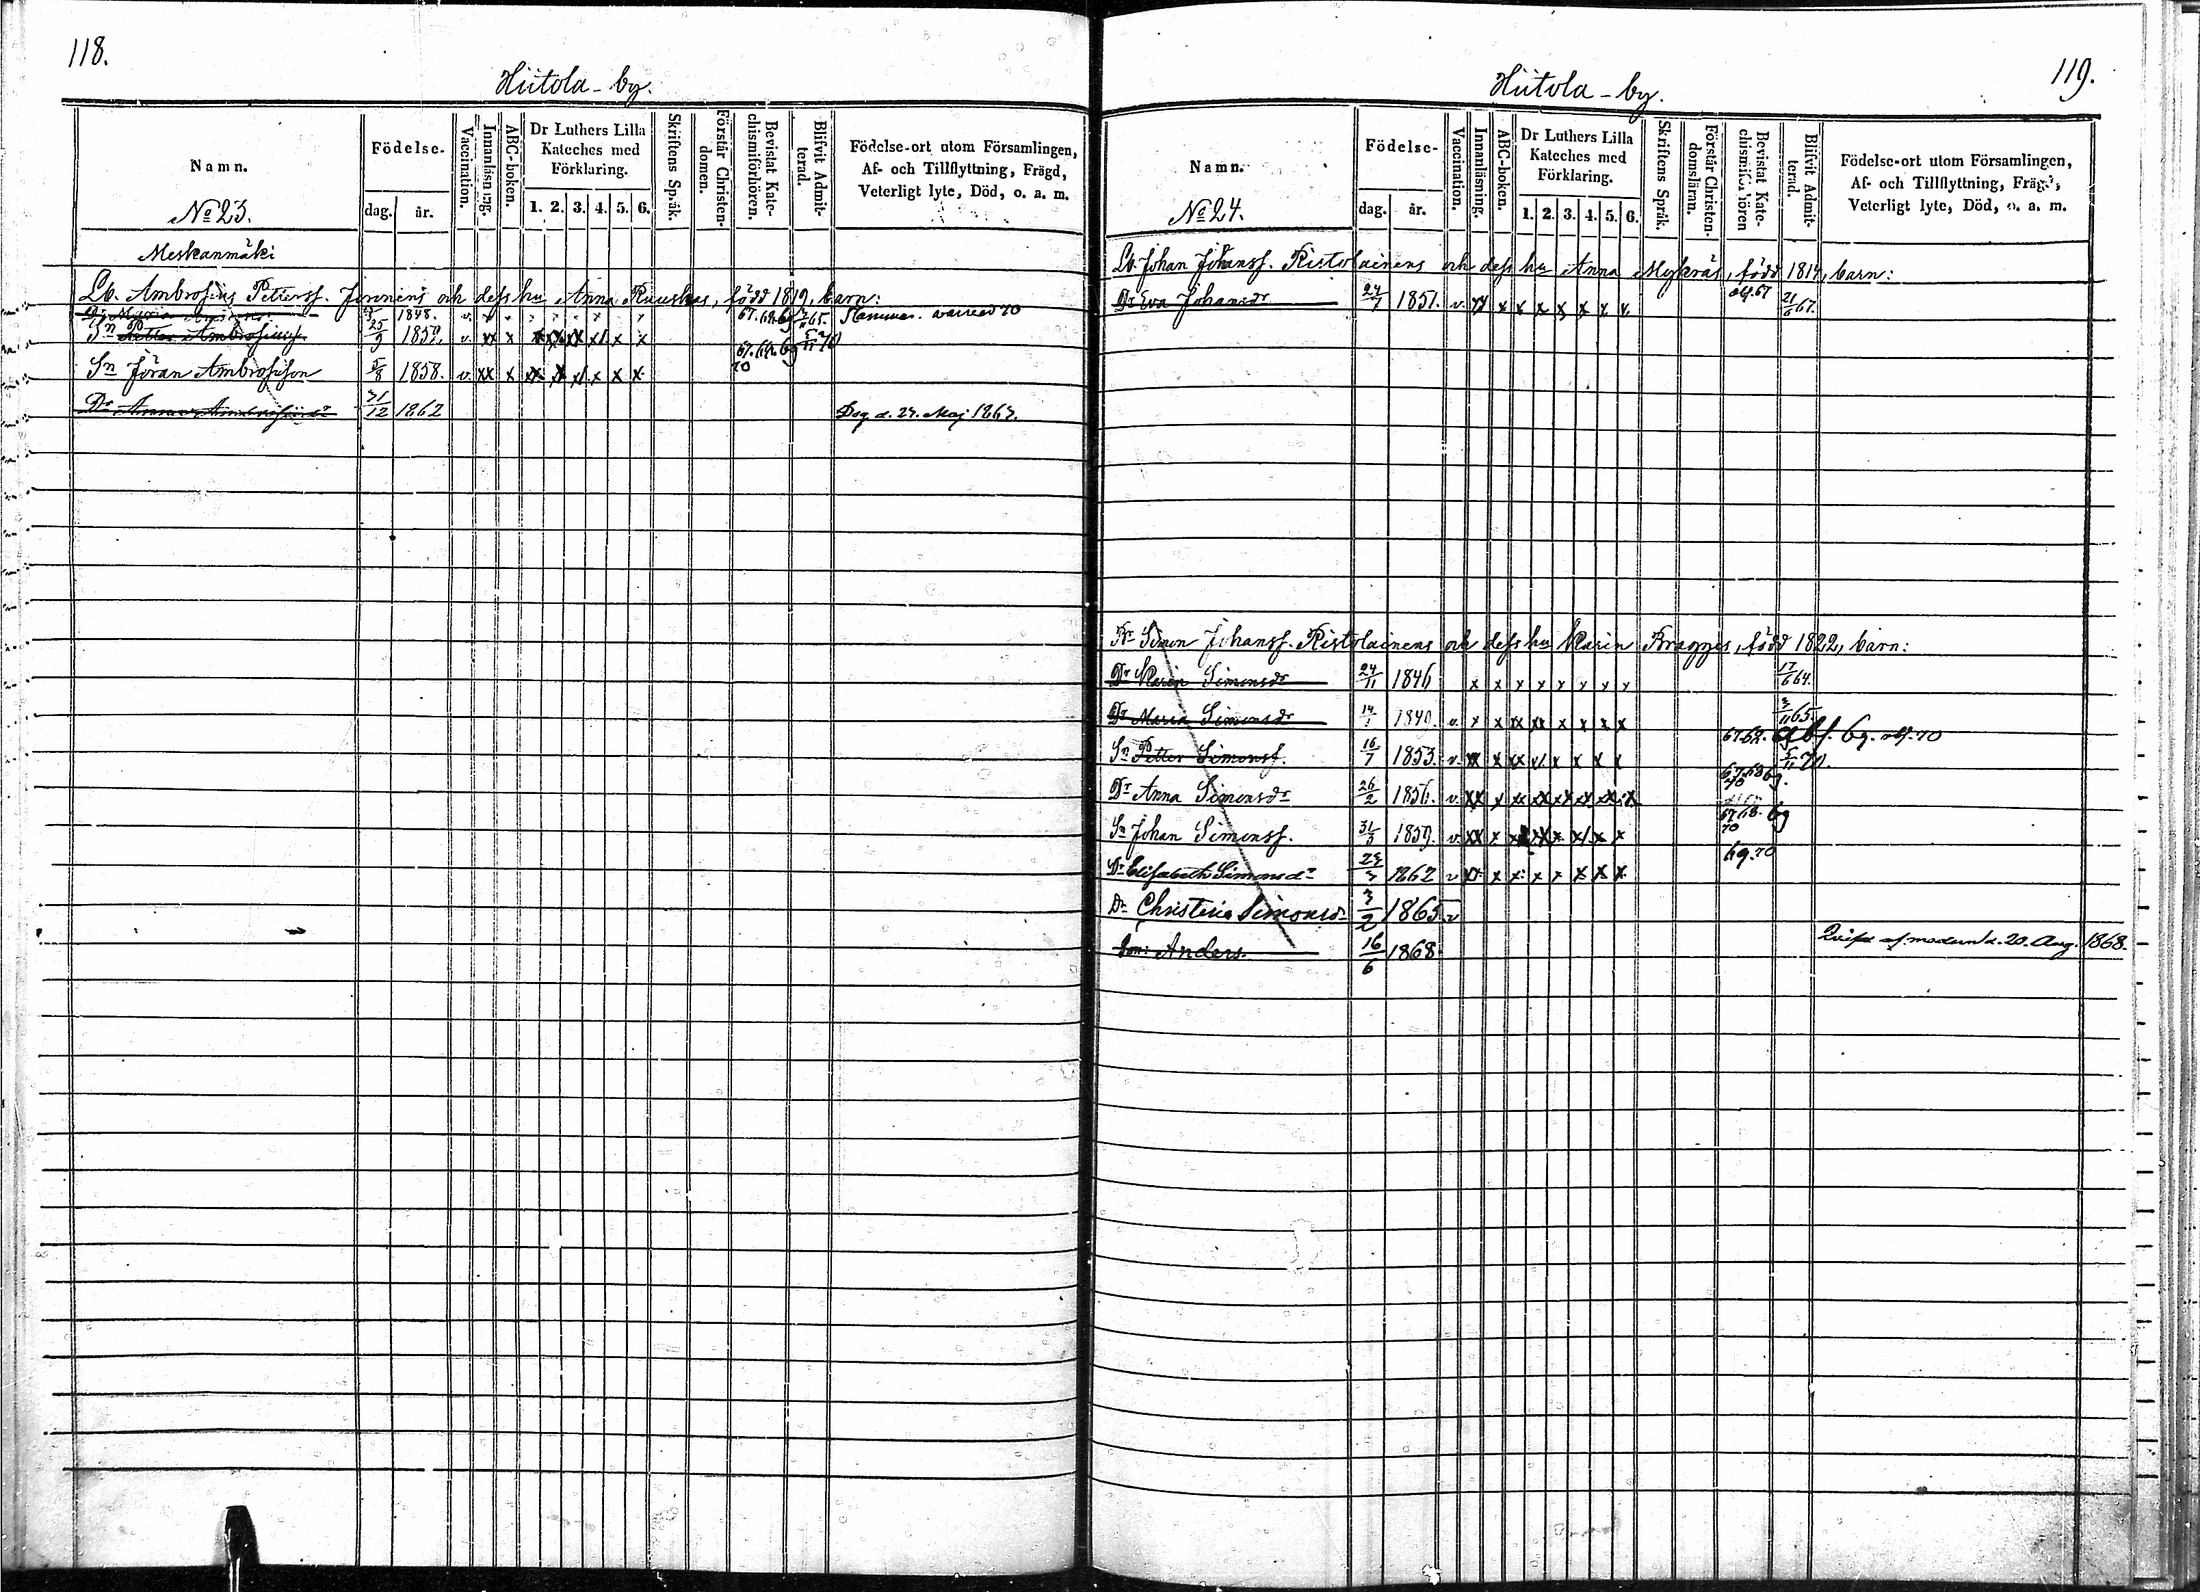 118.
Hiitola-by.
Namn.
No 23.
Födelse.
dag. år.
Vaccination.
Innanläsning.
ABC-boken.
Dr Luthers Lilla Kateches med Förklaring.
1. 2. 3. 4. 5. 6.
Skriftens Språk.
Förstår Christendomen.
Bevistat Katechismiförhören.
Blifvit Admitterad.
Födelse-ort utom Församlingen,
Af- och Tillflyttning, Frägd,
Veterligt lyte, Död, o. a. m.
Meskanmäki
Lb. Ambrosius Pettersf. och dess hu Anna Ruuskas, född 1819, barn:
Dr Maria 1848. v. 67. 68. 69 65.
Sn Petter Ambrosiusf. 25/9 1852. v. xx x x 67. 68. 69 5/11 70
Sn Jöran Ambrosiuson 5/8 1858. v. xx x 70
Dr Anna Ambrosiidr 31/12 1862 Dog d. 24. Maj 1863.
119.
Hiitola-by.
Namn.
No 24.
Födelse-
dag. år.
Vaccination.
Innanläsning.
ABC-boken.
Dr Luthers Lilla Kateches med Förklaring.
1. 2. 3. 4. 5. 6.
Skriftens Språk.
Förstår Christendomsläran.
Bevistat Katechismiförhören
Blifvit Admitterad.
Födelse-ort utom Församlingen,
Af- och Tillflyttning, Frägd,
Veterligt lyte, Död, o. a. m.
Lb. Johan Johansf. Ristolainens och dess hu Anna Myhräs, född 1814, barn:
Dr Eva Johansdr 24/7 1851. v. xx x x x x x x x 67 21/6 67.
Br Simon Johansf. Ristolainens och dess hu Karin Bragges, född 1822, barn:
Dr Karin Simonsdr 24/11 1846 x x x x x x x x 17/6 64.
Dr Maria Simonsdr 14/1 1840. v. x x xx xx x x x x 3/11 65.
Sn Petter Simonsf. 16/7 1853. v. xx x xx x x x x x 67. 68. 69. 70 5/11 70.
Dr Anna Simonsdr 26/2 1856. v. xx x xx xx xx xx xx x 67. 68 69. 70
Sn Johan Simonsf. 31/3 1859. v. xx x x x x 67 68. 69 70
Dr Elisabeth Simonsdr 1862 v xx x x x x x x x 69. 70
Dr Christina Simonsdr 3/2 1865 v
Son: Anders. 16/6 1868. Qväfd af modern d. 20. Aug. 1868.